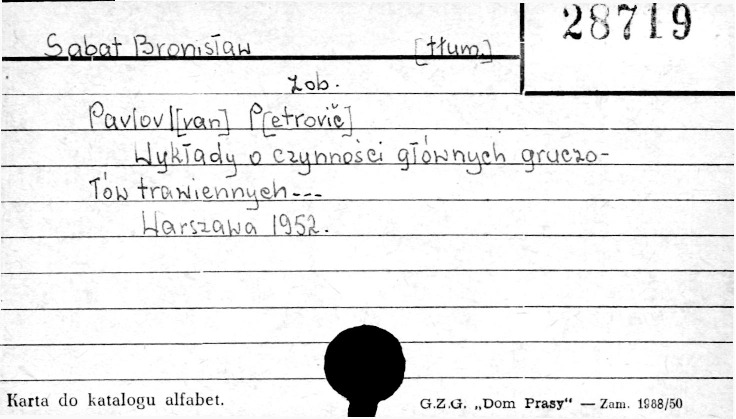 28719
Sabat Bronisław [tłum.]
zob.
Pavlov I[van] P[etrovič]
Wykłady o czynności głównych gruczo-
łów trawiennych ---
Warszawa 1952.
Karta do katalogu alfabet. G.Z.G. „Dom Prasy" — Zam. 1988/50